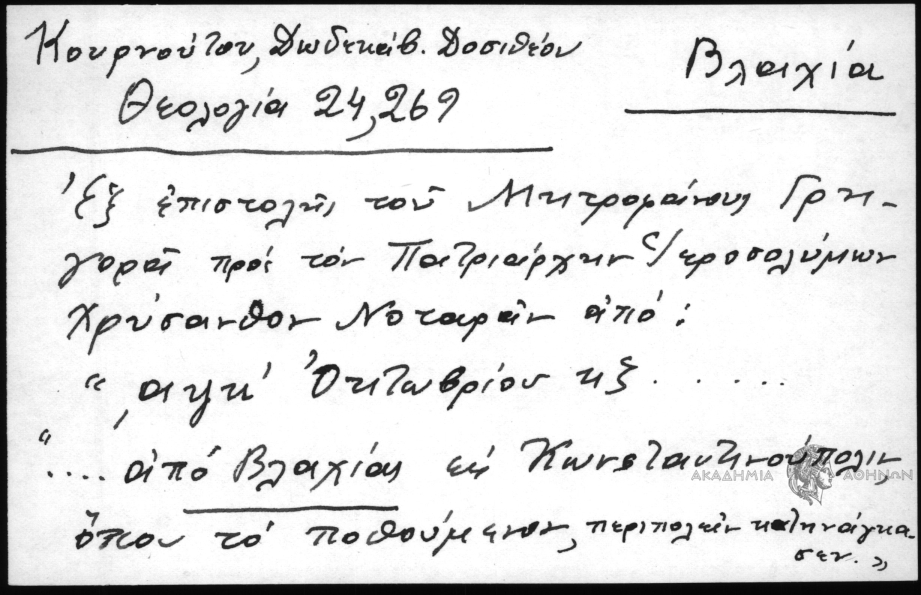 Κουρνούτου, Δωδεκάβ. Δοσιθέου
Βλαχία
Θεολογία 24, 269
Ἐξ ἐπιστολῆς τοῦ Μητροφάνους Γρη-
γορᾶ πρός τόν Πατριάρχην Ἱεροσολύμων
Χρύσανθον Νοταρᾶν ἀπό:
"͵αψκ' Ὀκτωβρίου κζ . . . . . .
".... ἀπό Βλαχίας εἰς Κωνσταντινούπολιν,
ὅπου τό ποθούμενον, περιπολεῖν κατηνάγκα-
σεν."
ΑΚΑΔΗΜΙΑ ΑΘΗΝΩΝ